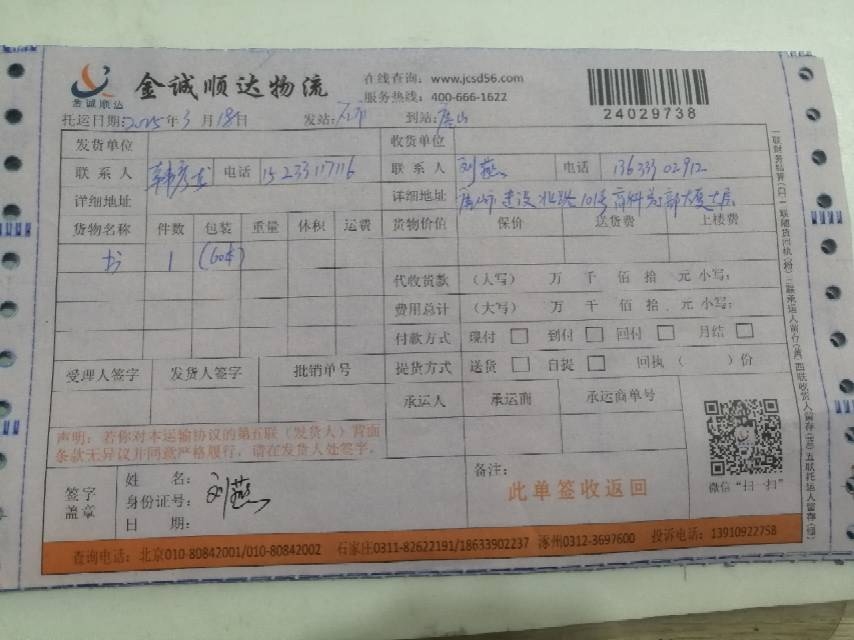 金诚顺达
金诚顺达物流
在线查询：www.jcsd56.com
服务热线：400-666-1622
24029738
托运日期:2025年3月18日 发站: 石市 到站: 唐山
发货单位 收货单位
联系人 电话 15233117116 联系人 刘燕 电话 13633302912
详细地址 详细地址 唐山市建设北路101号
货物名称 件数 包装 重量 体积 运费 货物价值 保价 送货费 上楼费
书 1 (60本)
代收货款 （大写） 万 千 佰 拾 元 小写：
费用总计 （大写） 万 千 佰 拾 元 小写：
付款方式 现付 □ 到付 □ 回付 □ 月结 □
提货方式 送货 □ 自提 □ 回执（ ）份
受理人签字 发货人签字 批销单号
承运人 承运商 承运商单号
声明：若你对本运输协议的第五联（发货人）背面
条款无异议并同意严格履行，请在发货人处签字。
签字
盖章
姓 名： 刘燕
身份证号：
日 期：
备注：
此单签收返回
微信“扫一扫”
查询电话：北京010-80842001/010-80842002 石家庄0311-82622191/18633902237 涿州0312-3697600 投诉电话：13910922758